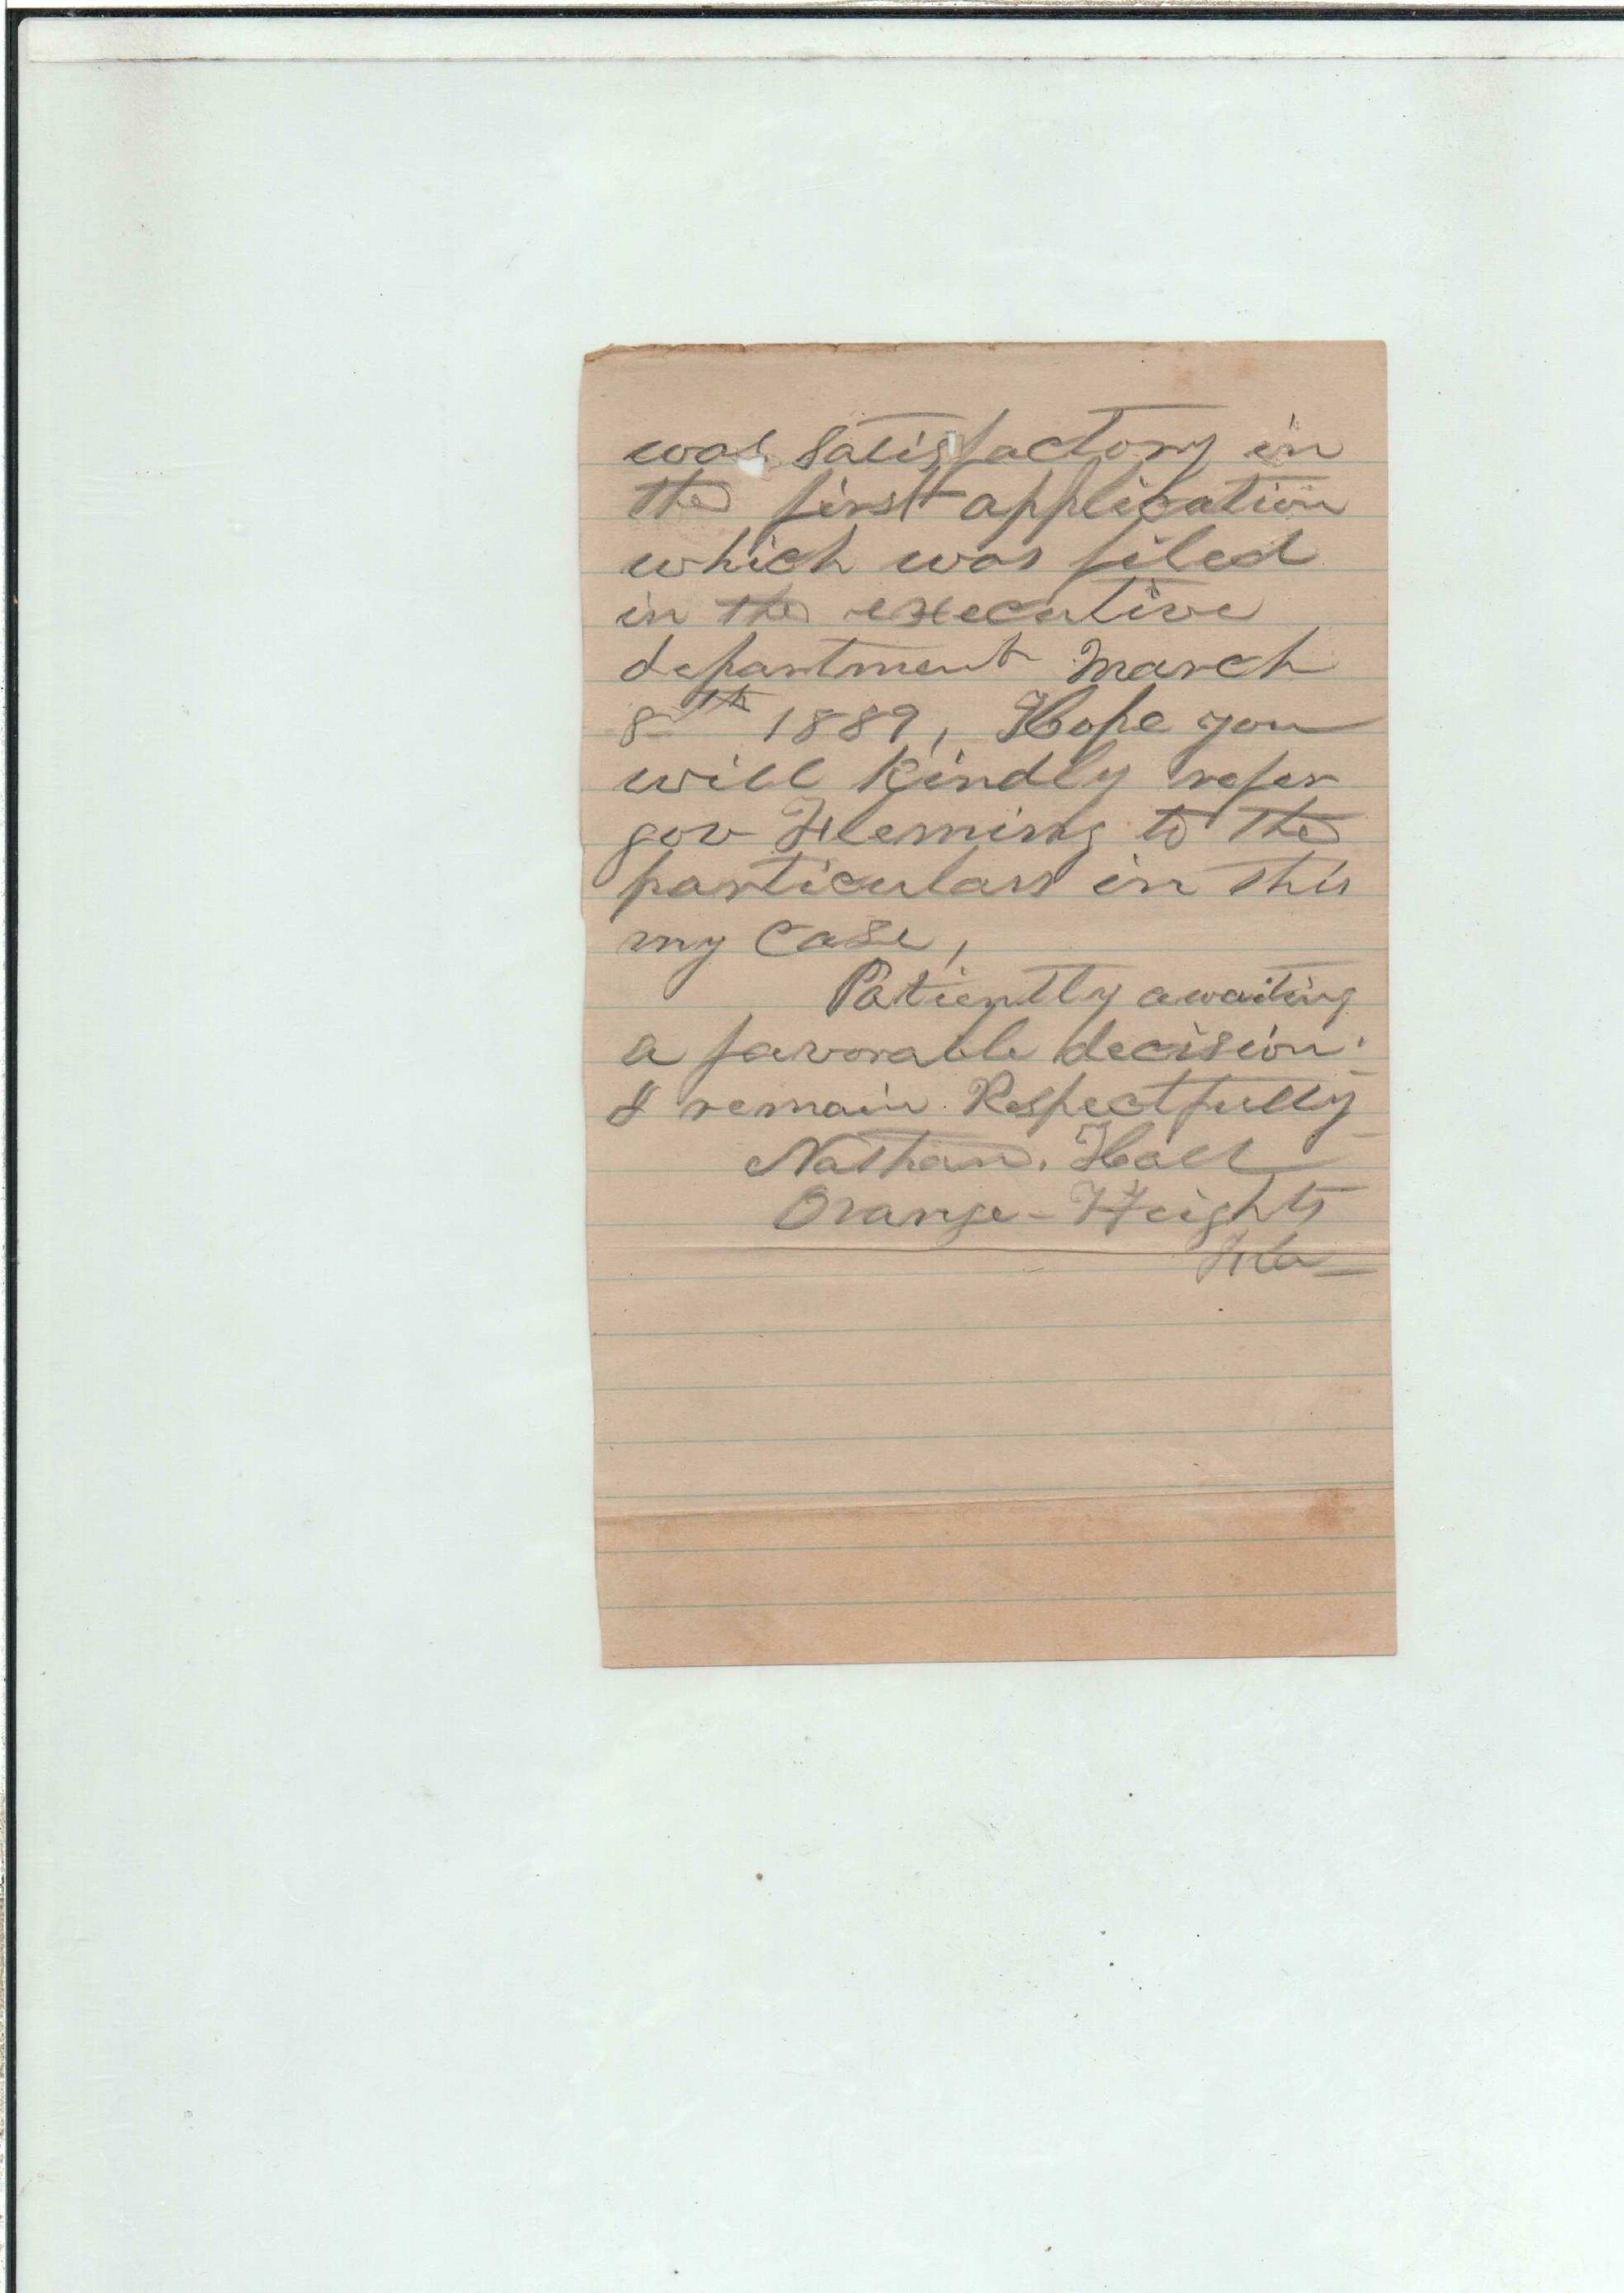 was satisfactory in
the first application
which was filed
in the executive
department March
8th 1889, Hope you
will Kindly refer
gov Fleming to the
particulars in this
my case,
Patiently awaiting
a favorable decision.
I remain Respectfully
Nathan. Hall
Orange-Heights
Fla